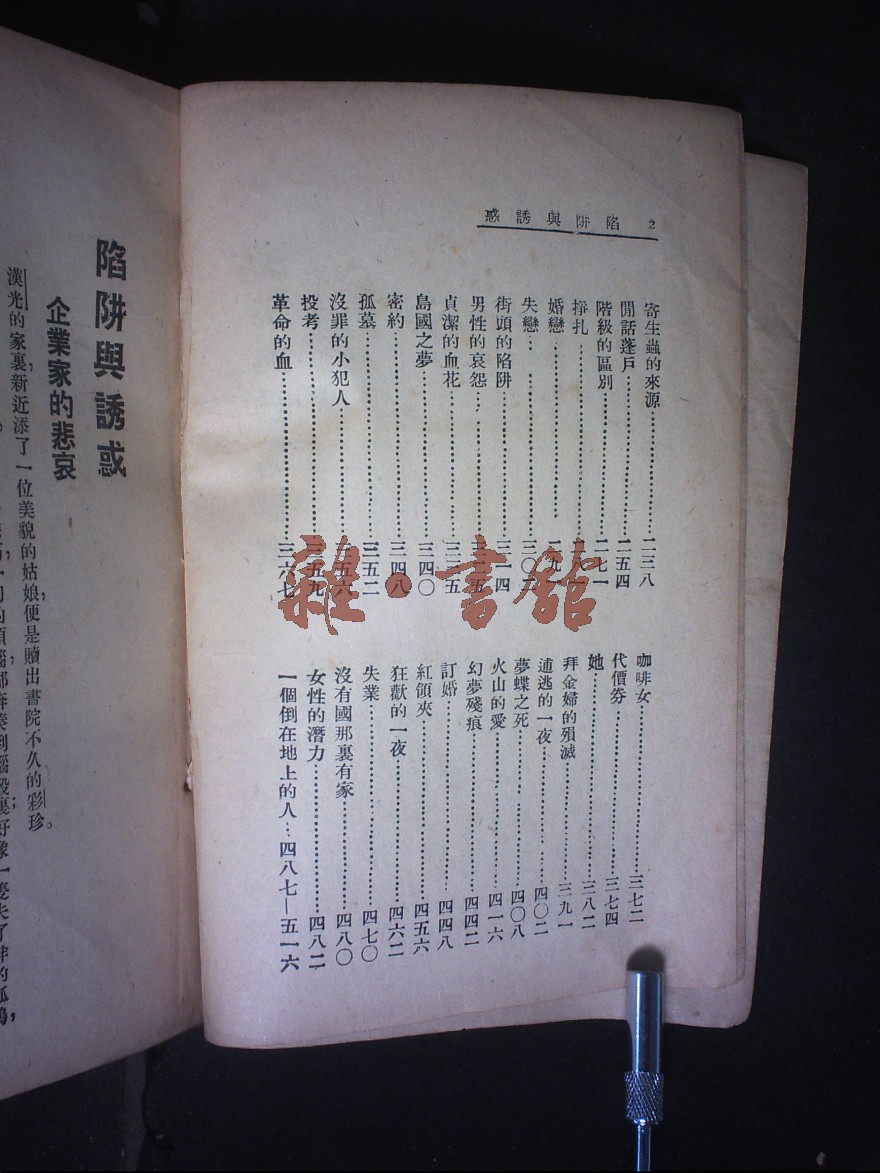 惑誘與阱陷 2
寄生蟲的來源⋯⋯二三八
閒話蓬戶⋯⋯二五四
階級的區別⋯⋯二七一
掙扎⋯⋯
婚戀⋯⋯
失戀⋯⋯三〇二
街頭的陷阱⋯⋯三一四
男性的哀怨⋯⋯
貞潔的血花⋯⋯三二五
島國之夢⋯⋯三四〇
密約⋯⋯三四八
孤墓⋯⋯三五二
沒罪的小犯人⋯⋯三五六
投考⋯⋯三五九
革命的血⋯⋯三六七
咖啡女⋯⋯三七二
代價券⋯⋯三七四
她⋯⋯三八二
拜金婦的殞滅⋯⋯三九一
逋逃的一夜⋯⋯四〇二
夢蝶之死⋯⋯四〇八
火山的愛⋯⋯四一六
幻夢殘痕⋯⋯四四二
訂婚⋯⋯四四八
紅領夾⋯⋯四五六
狂歡的一夜⋯⋯四六二
失業⋯⋯四七〇
沒有國那裏有家⋯⋯四八〇
女性的潛力⋯⋯四八二
一個倒在地上的人⋯四八七—五一六
雜·書館
陷阱與誘惑
企業家的悲哀
漢光的家裏新近添了一位美貌的姑娘，便是贖出書院不久的彩珍。